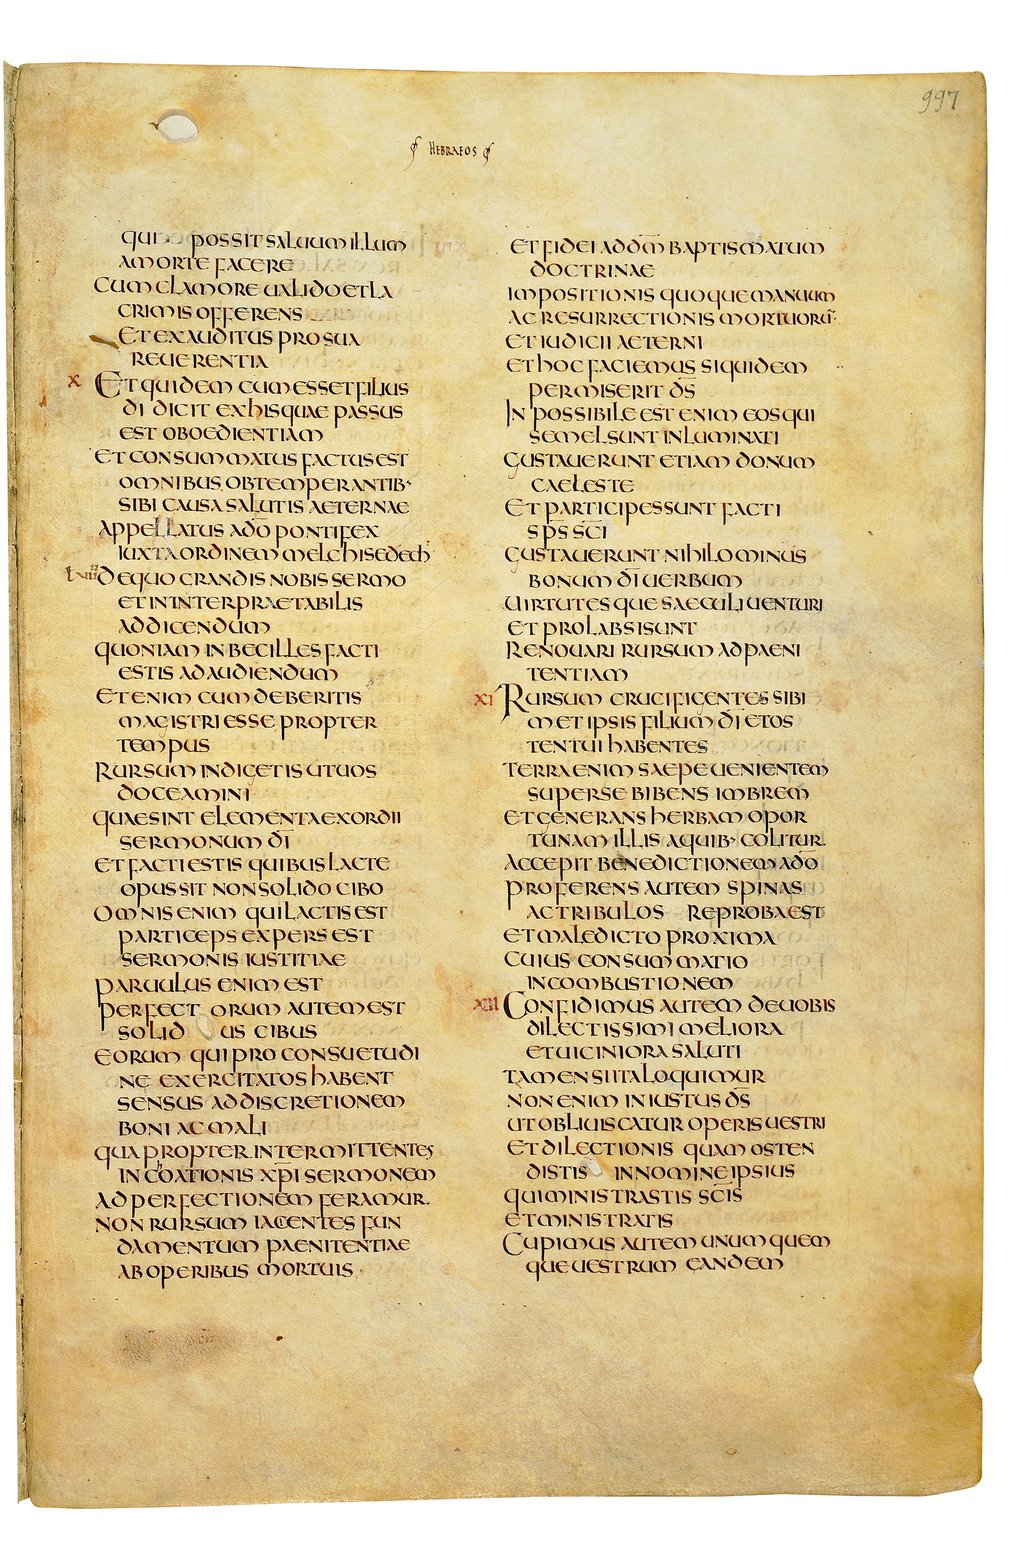 997
HEBRAEOS
QUI POSSIT SALUUM ILLUM
A MORTE FACERE
CUM CLAMORE UALIDO ET LA
CRIMIS OFFERENS
ET EXAUDITUS PRO SUA
REUERENTIA
X ET QUIDEM CUM ESSET FILIUS
DIDICIT EX HIS QUAE PASSUS
EST OBOEDIENTIAM
ET CONSUMMATUS FACTUS EST
OMNIBUS OBTEMPERANTIB·
SIBI CAUSA SALUTIS AETERNAE
APPELLATUS A DO̅ PONTIFEX
IUXTA ORDINEM MELCHISEDECH
DE QUO GRANDIS NOBIS SERMO
ET ININTERPRAETABILIS
AD DICENDUM
QUONIAM INBECILLES FACTI
ESTIS AD AUDIENDUM
ETENIM CUM DEBERITIS
MAGISTRI ESSE PROPTER
TEMPUS
RURSUM INDIGETIS UT UOS
DOCEAMINI
QUAE SINT ELEMENTA EXORDII
SERMONUM DI̅
ET FACTI ESTIS QUIBUS LACTE
OPUS SIT NON SOLIDO CIBO
OMNIS ENIM QUI LACTIS EST
PARTICEPS EXPERS EST
SERMONIS IUSTITIAE
PARUULUS ENIM EST
PERFECTORUM AUTEM EST
SOLIDUS CIBUS
EORUM QUI PRO CONSUETUDI
NE EXERCITATOS HABENT
SENSUS AD DISCRETIONEM
BONI AC MALI
QUAPROPTER INTERMITTENTES
INCOHATIONIS XP̅I SERMONEM
AD PERFECTIONEM FERAMUR.
NON RURSUM IACENTES FUN
DAMENTUM PAENITENTIAE
AB OPERIBUS MORTUIS
ET FIDEI AD DM̅ BAPTISMATUM
DOCTRINAE
IMPOSITIONIS QUOQUE MANUUM
AC RESURRECTIONIS MORTUORU̅·
ET IUDICII AETERNI
ET HOC FACIEMUS SIQUIDEM
PERMISERIT DS̅
INPOSSIBILE EST ENIM EOS QUI
SEMEL SUNT INLUMINATI
GUSTAUERUNT ETIAM DONUM
CAELESTE
ET PARTICIPES SUNT FACTI
SPS̅ SCI̅
GUSTAUERUNT NIHILOMINUS
BONUM DI̅ UERBUM
UIRTUTESQUE SAECULI UENTURI
ET PROLABSI SUNT
RENOUARI RURSUM AD PAENI
TENTIAM
XI RURSUM CRUCIFIGENTES SIBI
METIPSIS FILIUM DI̅ ET OS
TENTUI HABENTES
TERRA ENIM SAEPE UENIENTEM
SUPER SE BIBENS IMBREM
ET GENERANS HERBAM OPOR
TUNAM ILLIS A QUIB· COLITUR
ACCEPIT BENEDICTIONEM A DO̅
PROFERENS AUTEM SPINAS
AC TRIBULOS REPROBA EST
ET MALEDICTO PROXIMA
CUIUS CONSUMMATIO
IN COMBUSTIONEM
XII CONFIDIMUS AUTEM DE UOBIS
DILECTISSIMI MELIORA
ET UICINIORA SALUTI
TAMENSI ITA LOQUIMUR
NON ENIM INIUSTUS DS̅
UT OBLIUISCATUR OPERIS UESTRI
ET DILECTIONIS QUAM OSTEN
DISTIS IN NOMINE IPSIUS
QUI MINISTRASTIS SCI̅S
ET MINISTRATIS
CUPIMUS AUTEM UNUMQUEM
QUE UESTRUM EANDEM